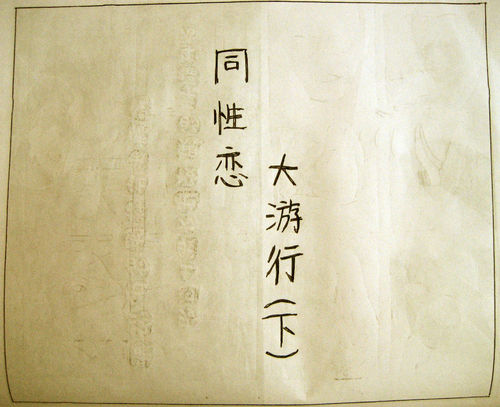 同性恋
大游行（下）